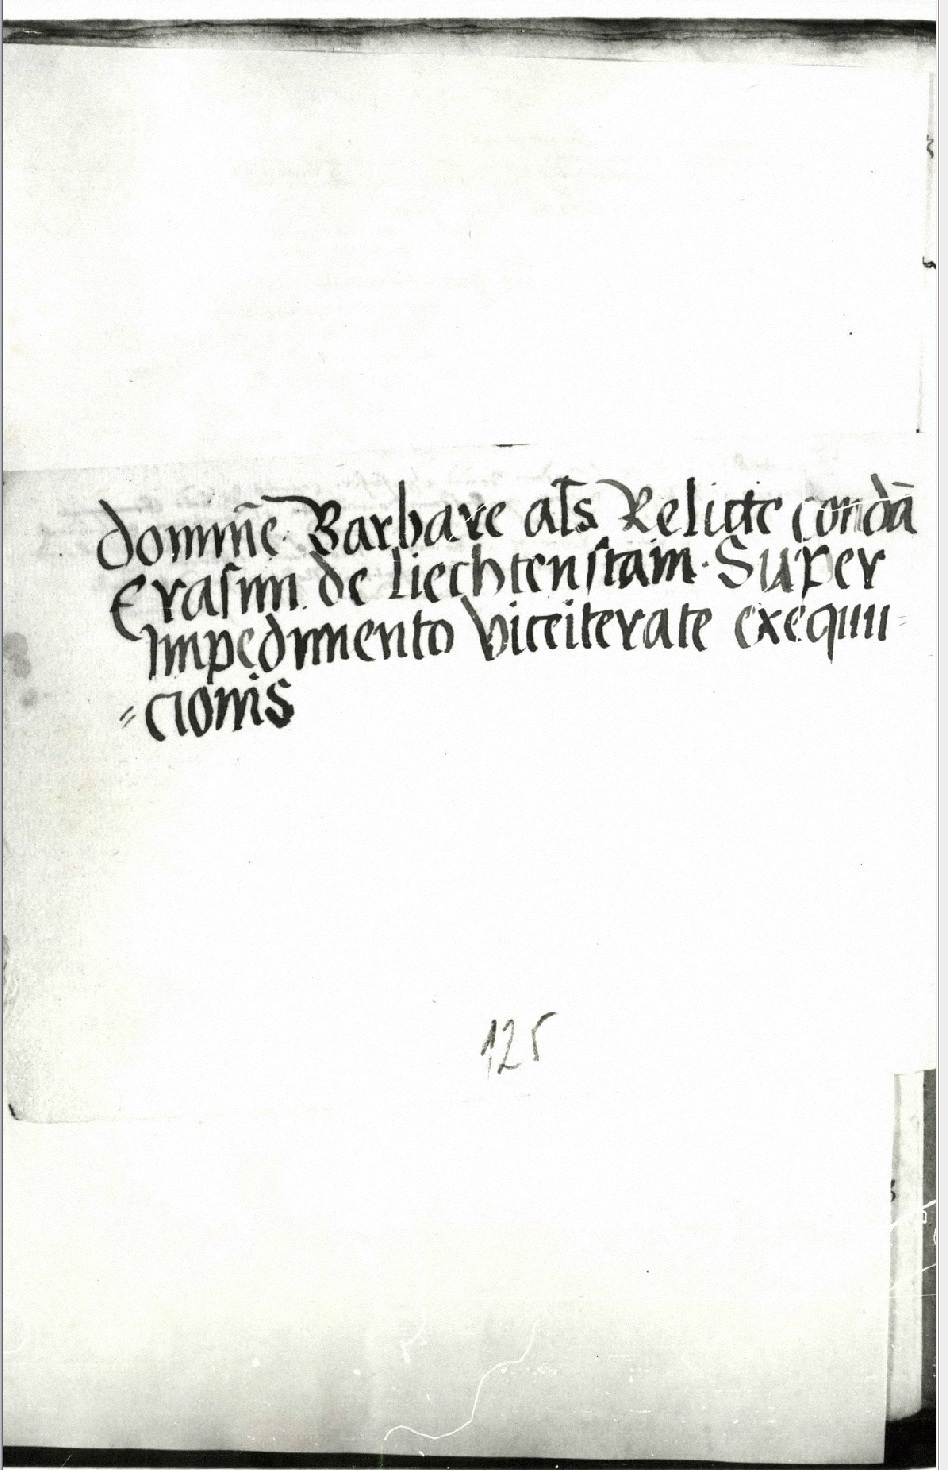 domine Barbare als Relicte condā
Erasmi de Liechtenstain. Super
Impedimento viceiterate exequu=
=cionis
125